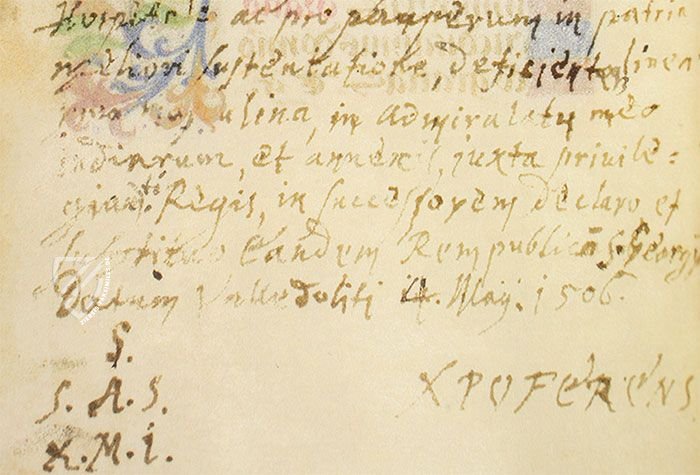 Hospitale ac pro pauperum in patria
meliori sustentatione, deficiente linea
mea masculina, in admiralatu meo
indiarum, et annexis, juxta privile-
gium dti Regis, in successorem declaro et
substituo eandem Rempublicam S. Georgij
Datum Valledoliti 4. Maij. 1506.
S.
S. A. S.
X. M. I.
XPOFERENS